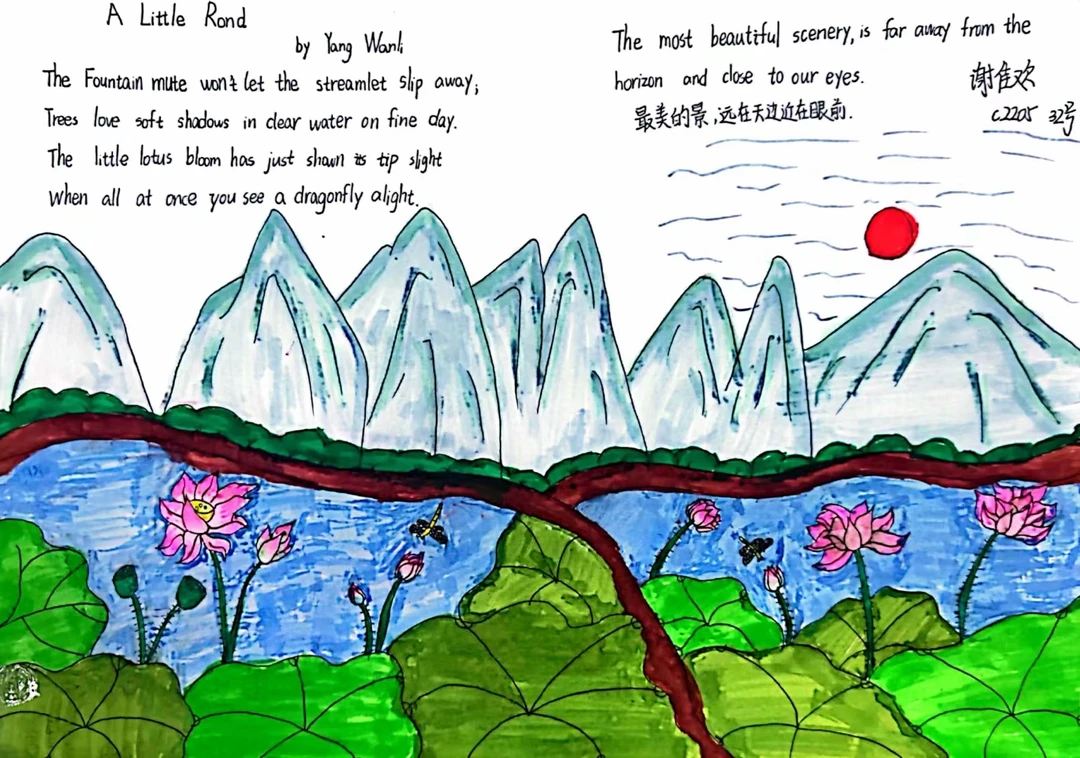 A Little Rond
by Yang Wanli
The Fountain mute won't let the streamlet slip away;
Trees love soft shadows in clear water on fine day.
The little lotus bloom has just shown its tip slight
When all at once you see a dragonfly alight.
The most beautiful scenery, is far away from the
horizon and close to our eyes.
最美的景,远在天边近在眼前.
谢佳欢
C2205 32号